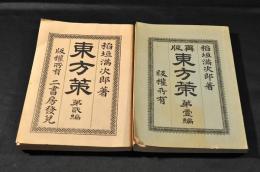 再版
稻垣満次郎著
東方策
第壹編
版權所有
稻垣満次郎著
東方策
第貳編
版權所有
二書房發兌